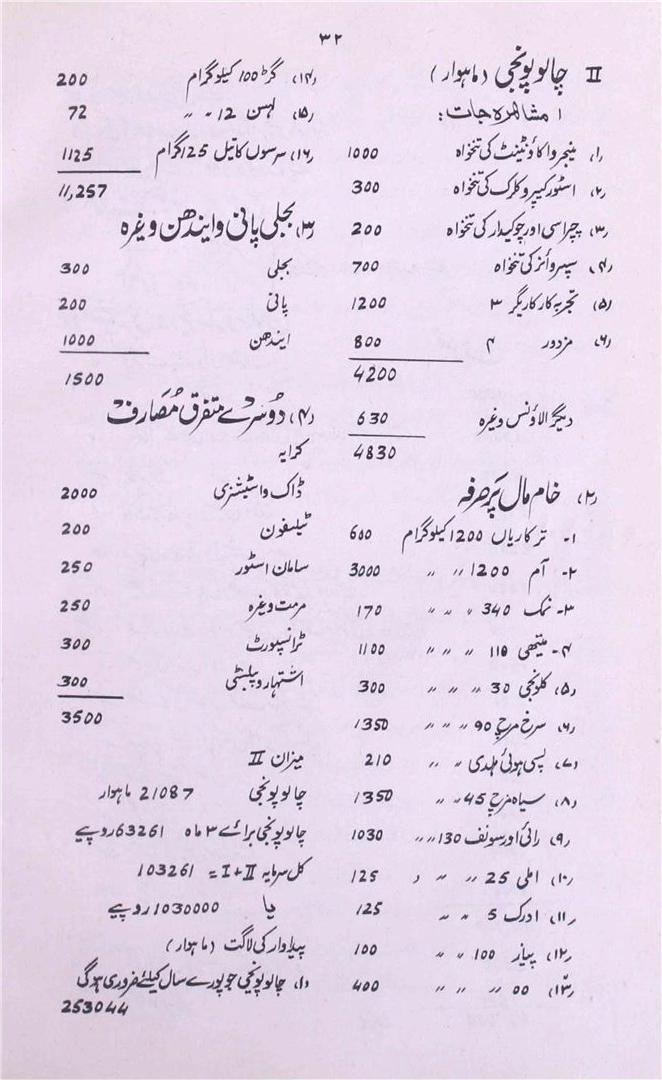 ۳۲
II چالو پونجی (ماہوار)
۱ مشاہرہ جات:
۱، منیجر و اکاؤنٹینٹ کی تنخواہ 1000
۲، اسٹور کیپر و کلرک کی تنخواہ 300
۳، چپراسی اور چوکیدار کی تنخواہ 200
۴، سپروائزر کی تنخواہ 700
۵) تجربہ کار کاریگر ۳ 1200
۶، مزدور ۴ 800
4200
دیگر الاؤنس وغیرہ 630
4830
۲، خام مال پر صرفہ
۱- ترکاریاں 1200 کیلوگرام 600
۲- آم 1200 〃 〃 3000
۳- نمک 340 〃 〃 170
۴- میتھی 110 〃 〃 1100
۵، کلونجی 30 〃 〃 300
۶، سرخ مرچ 90 〃 〃 1350
۷، پسی ہوئی ہلدی 〃 〃 210
۸، سیاہ مرچ 45 〃 〃 1350
۹) رائی اور سونف 130 〃 〃 1030
۱۰) املی 25 〃 〃 125
۱۱، ادرک 5 〃 〃 125
۱۲) پیاز 100 〃 〃 100
۱۳) 00 〃 〃 〃 400
۱۴) گڑ 100 کیلوگرام 200
۱۵) لہسن 12 〃 〃 72
۱۶) سرسوں کا تیل 125 گرام 1125
11,257
۳، بجلی پانی و ایندھن وغیرہ
بجلی 300
پانی 200
ایندھن 1000
1500
۴) دوسرے متفرق مصارف
کرایہ
ڈاک و اسٹیشنری 2000
ٹیلیفون 200
سامان اسٹور 250
مرمت وغیرہ 250
ٹرانسپورٹ 300
اشتہار و پبلیٹی 300
3500
میزان II
چالو پونجی 21087 ماہوار
چالو پونجی برائے ۳ ماہ 63261 روپیے
کل سرمایہ I+II = 103261
یا 1030000 روپیے
پیداوار کی لاگت (ماہوار)
۱، چالو پونجی جو پورے سال کیلئے ضروری ہوگی
253044